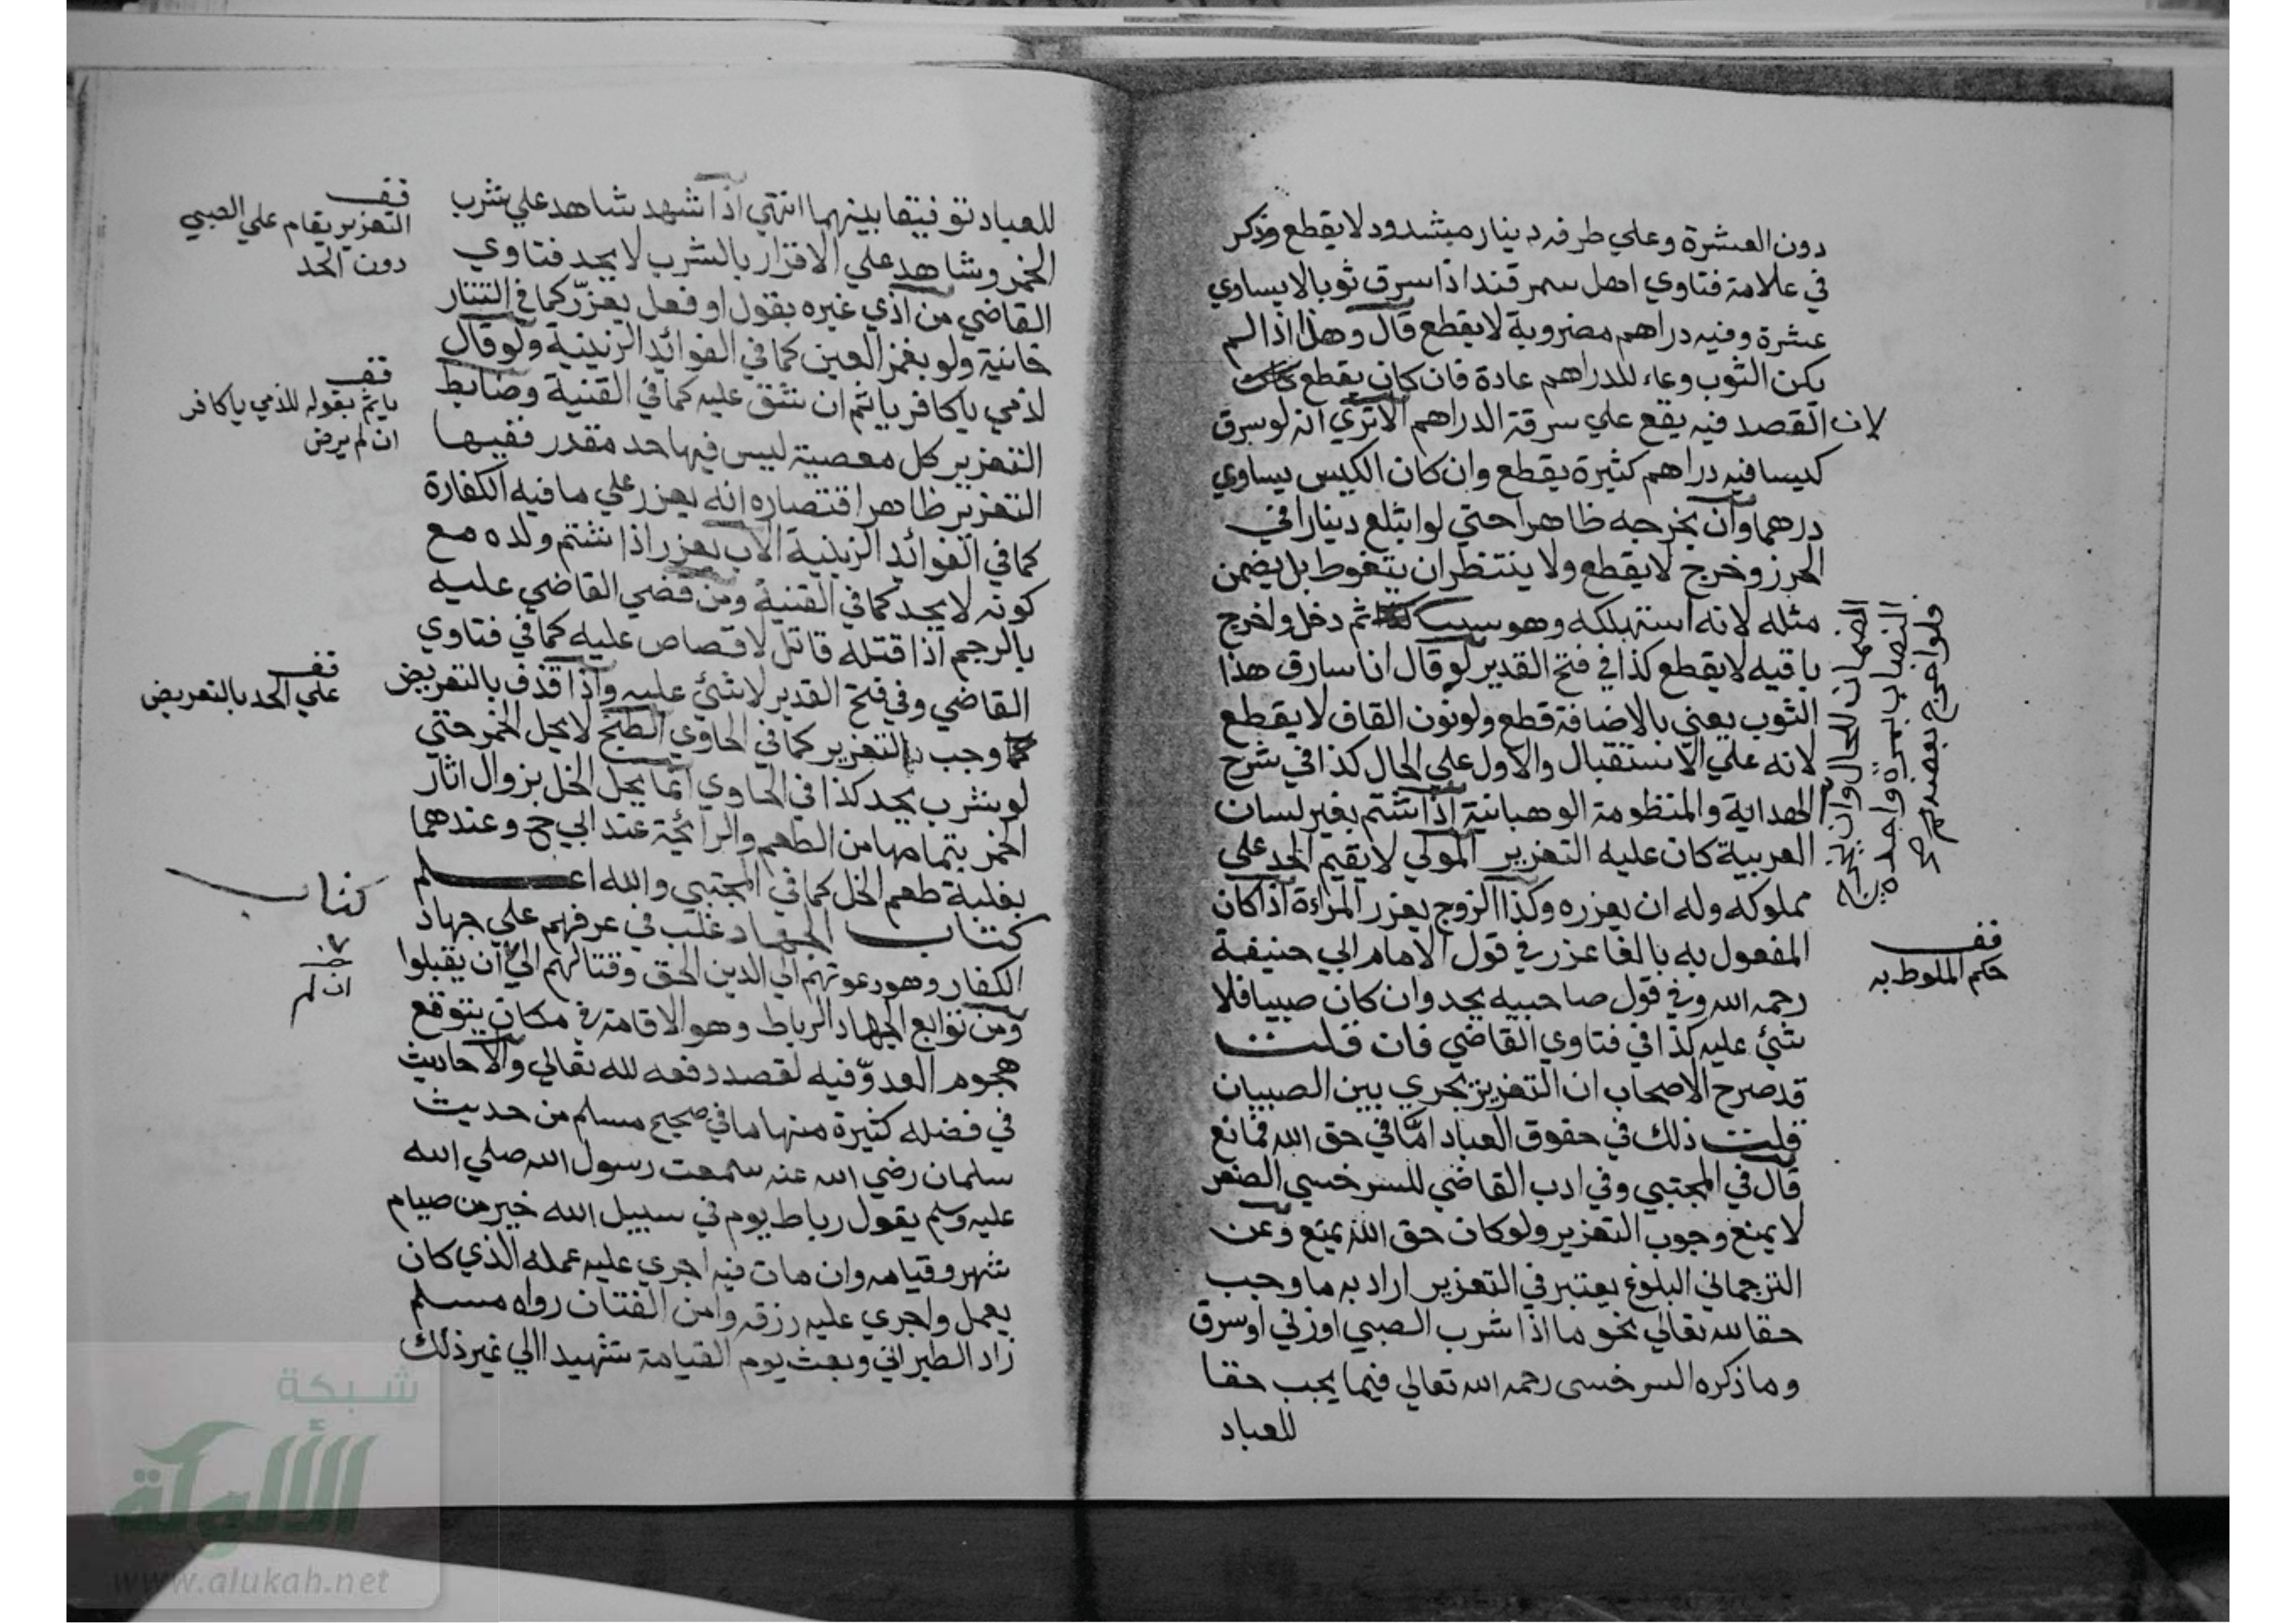 دون العشرة وعلي طرفه دينار مشدود لا يقطع وذكر
في علامة فتاوي اهل سمرقند اذا سرق ثوبا لا يساوي
عشرة وفيه دراهم مضروبة لا يقطع قال وهذا اذا لم
يكن الثوب وعاء للدراهم عادة فان كان يقطع
لان القصد فيه يقع علي سرقة الدراهم الا تري انه لو سرق
كيسا فيه دراهم كثيرة يقطع وان كان الكيس يساوي
درهما وان يخرجه ظاهرا حتي لو ابتلع دينارا في
الحرز وخرج لا يقطع ولا ينتظر ان يتغوط بل يضمن
مثله لانه استهلكه وهو سبب ثم دخل واخرج
باقيه لا يقطع كذا في فتح القدير لو قال انا سارق هذا
الثوب يعني بالاضافة قطع ولو نون القاف لا يقطع
لانه علي الاستقبال والاول علي الحال كذا في شرح
الهداية والمنظومة الوهبانية اذا شتم بغير لسان
العربية كان عليه التعزير المولي لا يقيم الحد علي
مملوكه وله ان يعزره وكذا الزوج يعزر المراءة اذا كان
المفعول به بالغا عزر في قول الامام ابي حنيفة
رحمه الله وفي قول صاحبيه يحد وان كان صبيا فلا
شئ عليه كذا في فتاوي القاضي فان قلت
قد صرح الاصحاب ان التعزير يجري بين الصبيان
قلت ذلك في حقوق العباد اما في حق الله فمانع
قال في المجتبي وفي ادب القاضي للسرخسي الصغر
لا يمنع وجوب التعزير ولو كان حق الله يمنع وعن
الترجماني البلوغ يعتبر في التعزير اراد به ما وجب
حقا لله تعالي نحو ما اذا شرب الصبي او زني او سرق
وما ذكره السرخسي رحمه الله تعالي فيما يجب حقا
للعباد
الضمان للحال وان يخرج
النصاب بمرة واحدة
فلو اخرج بعضه
قف
حكم الملوط به
للعباد توفيقا بينهما انتهي اذا شهد شاهد علي شرب
الخمر وشاهد علي الاقرار بالشرب لا يحد فتاوي
القاضي من اذي غيره بقول او فعل يعزر كما في التتار
خانية ولو بغمز العين كما في الفوائد الزينية ولو قال
لذمي يا كافر ياثم ان شق عليه كما في القنية وضابط
التعزير كل معصية ليس فيها حد مقدر ففيها
التعزير ظاهر اقتصاره انه يعزر علي ما فيه الكفارة
كما في الفوائد الزينية الاب يعزر اذا شتم ولده مع
كونه لا يحد كما في القنية ومن قضي القاضي عليه
بالرجم اذا قتله قاتل لا قصاص عليه كما في فتاوي
القاضي وفي فتح القدير لا شئ عليه واذا قذف بالتعريض
وجب التعزير كما في الحاوي الطبخ لا يحل الخمر حتي
لو شرب يحد كذا في الحاوي انما يحل الخل بزوال اثار
الخمر بتمامها من الطعم والرائحة عند ابي ح وعندهما
بغلبة طعم الخل كما في المجتبي والله اعلم
كتاب الجهاد غلب في عرفهم علي جهاد
الكفار وهو دعوتهم الي الدين الحق وقتالهم الي ان يقبلوا
ومن توابع الجهاد الرباط وهو الاقامة في مكان يتوقع
هجوم العدو فيه لقصد دفعه لله تعالي والاحاديث
في فضله كثيرة منها ما في صحيح مسلم من حديث
سلمان رضي الله عنه سمعت رسول الله صلي الله
عليه وسلم يقول رباط يوم في سبيل الله خير من صيام
شهر وقيامه وان مات فيه اجري عليه عمله الذي كان
يعمل واجري عليه رزقه وامن الفتان رواه مسلم
زاد الطبراني وبعث يوم القيامة شهيدا الي غير ذلك
قف
التعزير يقام علي الصبي
دون الحد
قف
ياثم بقوله للذمي يا كافر
ان لم يرض
قف
علي الحد بالتعريض
كتاب
ان لم
شبكة
الألوكة
www.alukah.net